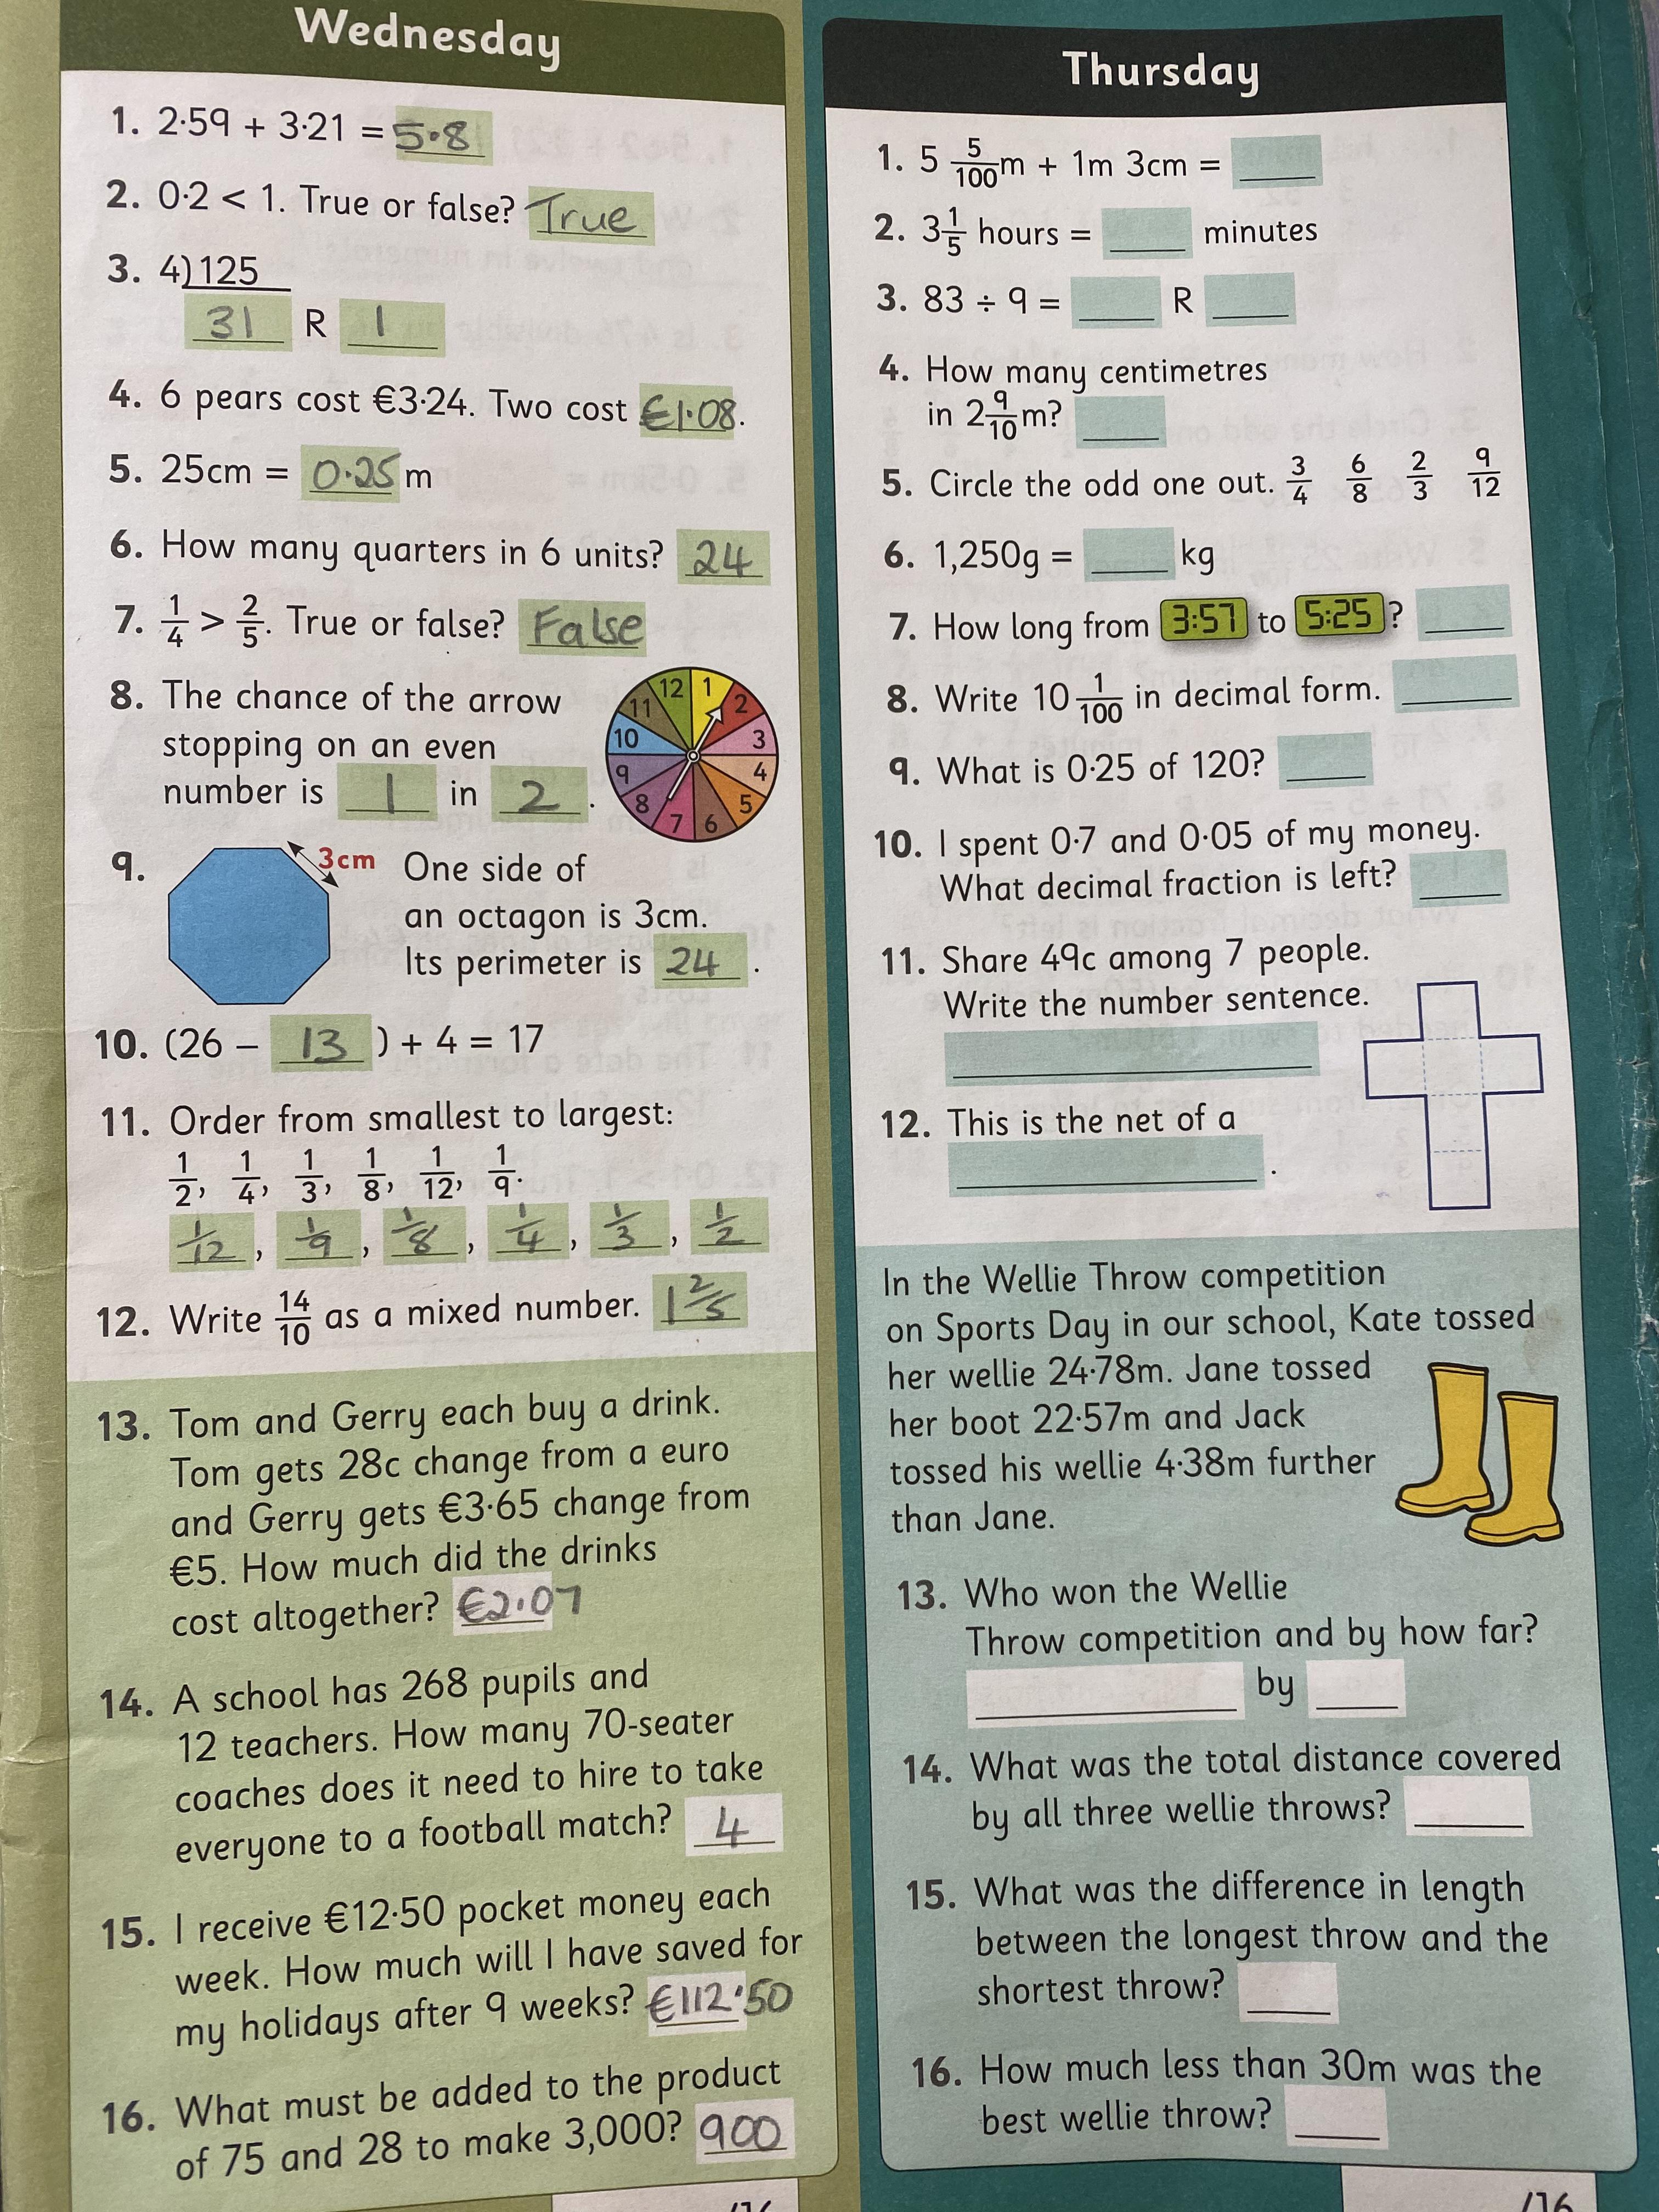 Wednesday
1. 2·59 + 3·21 = 5·8
2. 0·2 < 1. True or false? True
3. 4)125
31 R 1
4. 6 pears cost €3·24. Two cost €1·08.
5. 25cm = 0·25 m
6. How many quarters in 6 units? 24
7. 1/4 > 2/5. True or false? False
8. The chance of the arrow
stopping on an even
number is 1 in 2.
12 1 2 3 4 5 6 7 8 9 10 11
9. 3cm One side of
an octagon is 3cm.
Its perimeter is 24.
10. (26 – 13) + 4 = 17
11. Order from smallest to largest:
1/2, 1/4, 1/3, 1/8, 1/12, 1/9.
1/12, 1/9, 1/8, 1/4, 1/3, 1/2
12. Write 14/10 as a mixed number. 1 2/5
13. Tom and Gerry each buy a drink.
Tom gets 28c change from a euro
and Gerry gets €3·65 change from
€5. How much did the drinks
cost altogether? €2·07
14. A school has 268 pupils and
12 teachers. How many 70-seater
coaches does it need to hire to take
everyone to a football match? 4
15. I receive €12·50 pocket money each
week. How much will I have saved for
my holidays after 9 weeks? €112·50
16. What must be added to the product
of 75 and 28 to make 3,000? 900
/16
Thursday
1. 5 5/100 m + 1m 3cm =
2. 3 1/5 hours = minutes
3. 83 ÷ 9 = R
4. How many centimetres
in 2 9/10 m?
5. Circle the odd one out. 3/4 6/8 2/3 9/12
6. 1,250g = kg
7. How long from 3:57 to 5:25?
8. Write 10 1/100 in decimal form.
9. What is 0·25 of 120?
10. I spent 0·7 and 0·05 of my money.
What decimal fraction is left?
11. Share 49c among 7 people.
Write the number sentence.
12. This is the net of a
.
In the Wellie Throw competition
on Sports Day in our school, Kate tossed
her wellie 24·78m. Jane tossed
her boot 22·57m and Jack
tossed his wellie 4·38m further
than Jane.
13. Who won the Wellie
Throw competition and by how far?
by
14. What was the total distance covered
by all three wellie throws?
15. What was the difference in length
between the longest throw and the
shortest throw?
16. How much less than 30m was the
best wellie throw?
/16